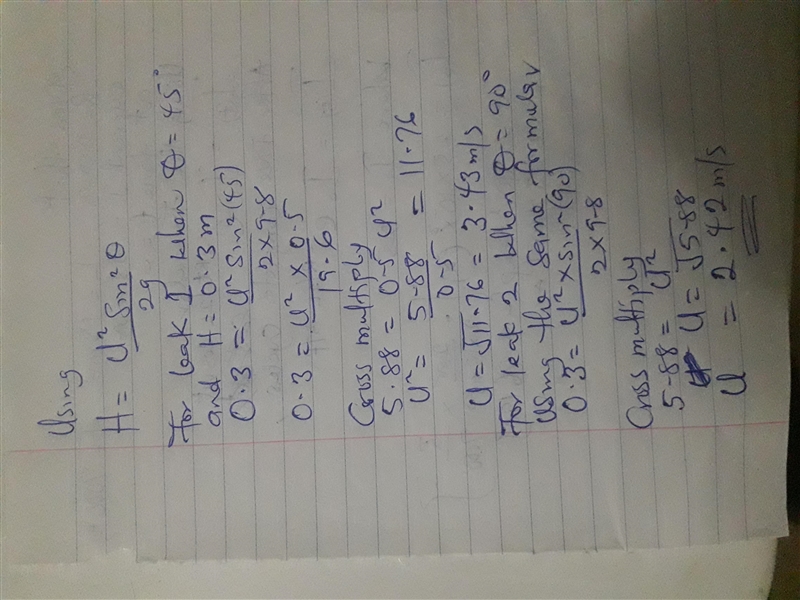 Using
H = U² Sin²θ
2g
For leak 1 when θ = 45°
and H = 0.3m
0.3 = U² Sin²(45)
2×9.8
0.3 = U² × 0.5
19.6
Cross multiply
5.88 = 0.5 U²
U² = 5.88 = 11.76
0.5
U = √11.76 = 3.43 m/s
For leak 2 when θ = 90°
Using the same formular
0.3 = U² × sin²(90)
2×9.8
Cross multiply
5.88 = U²
U = √5.88
U = 2.42 m/s